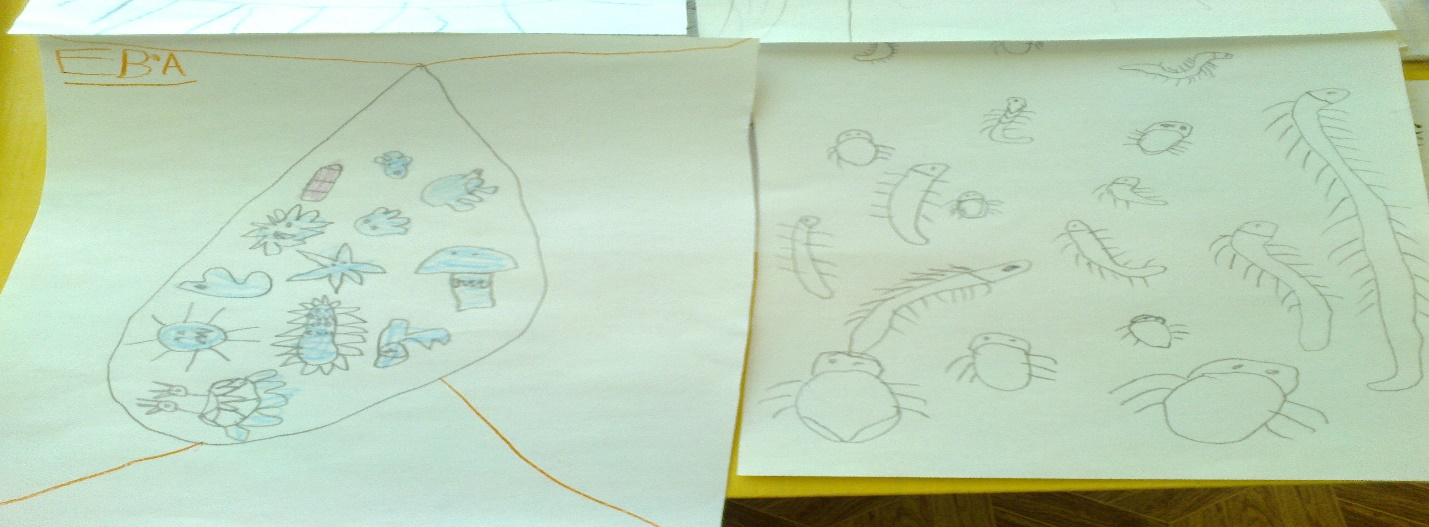 ЕВА